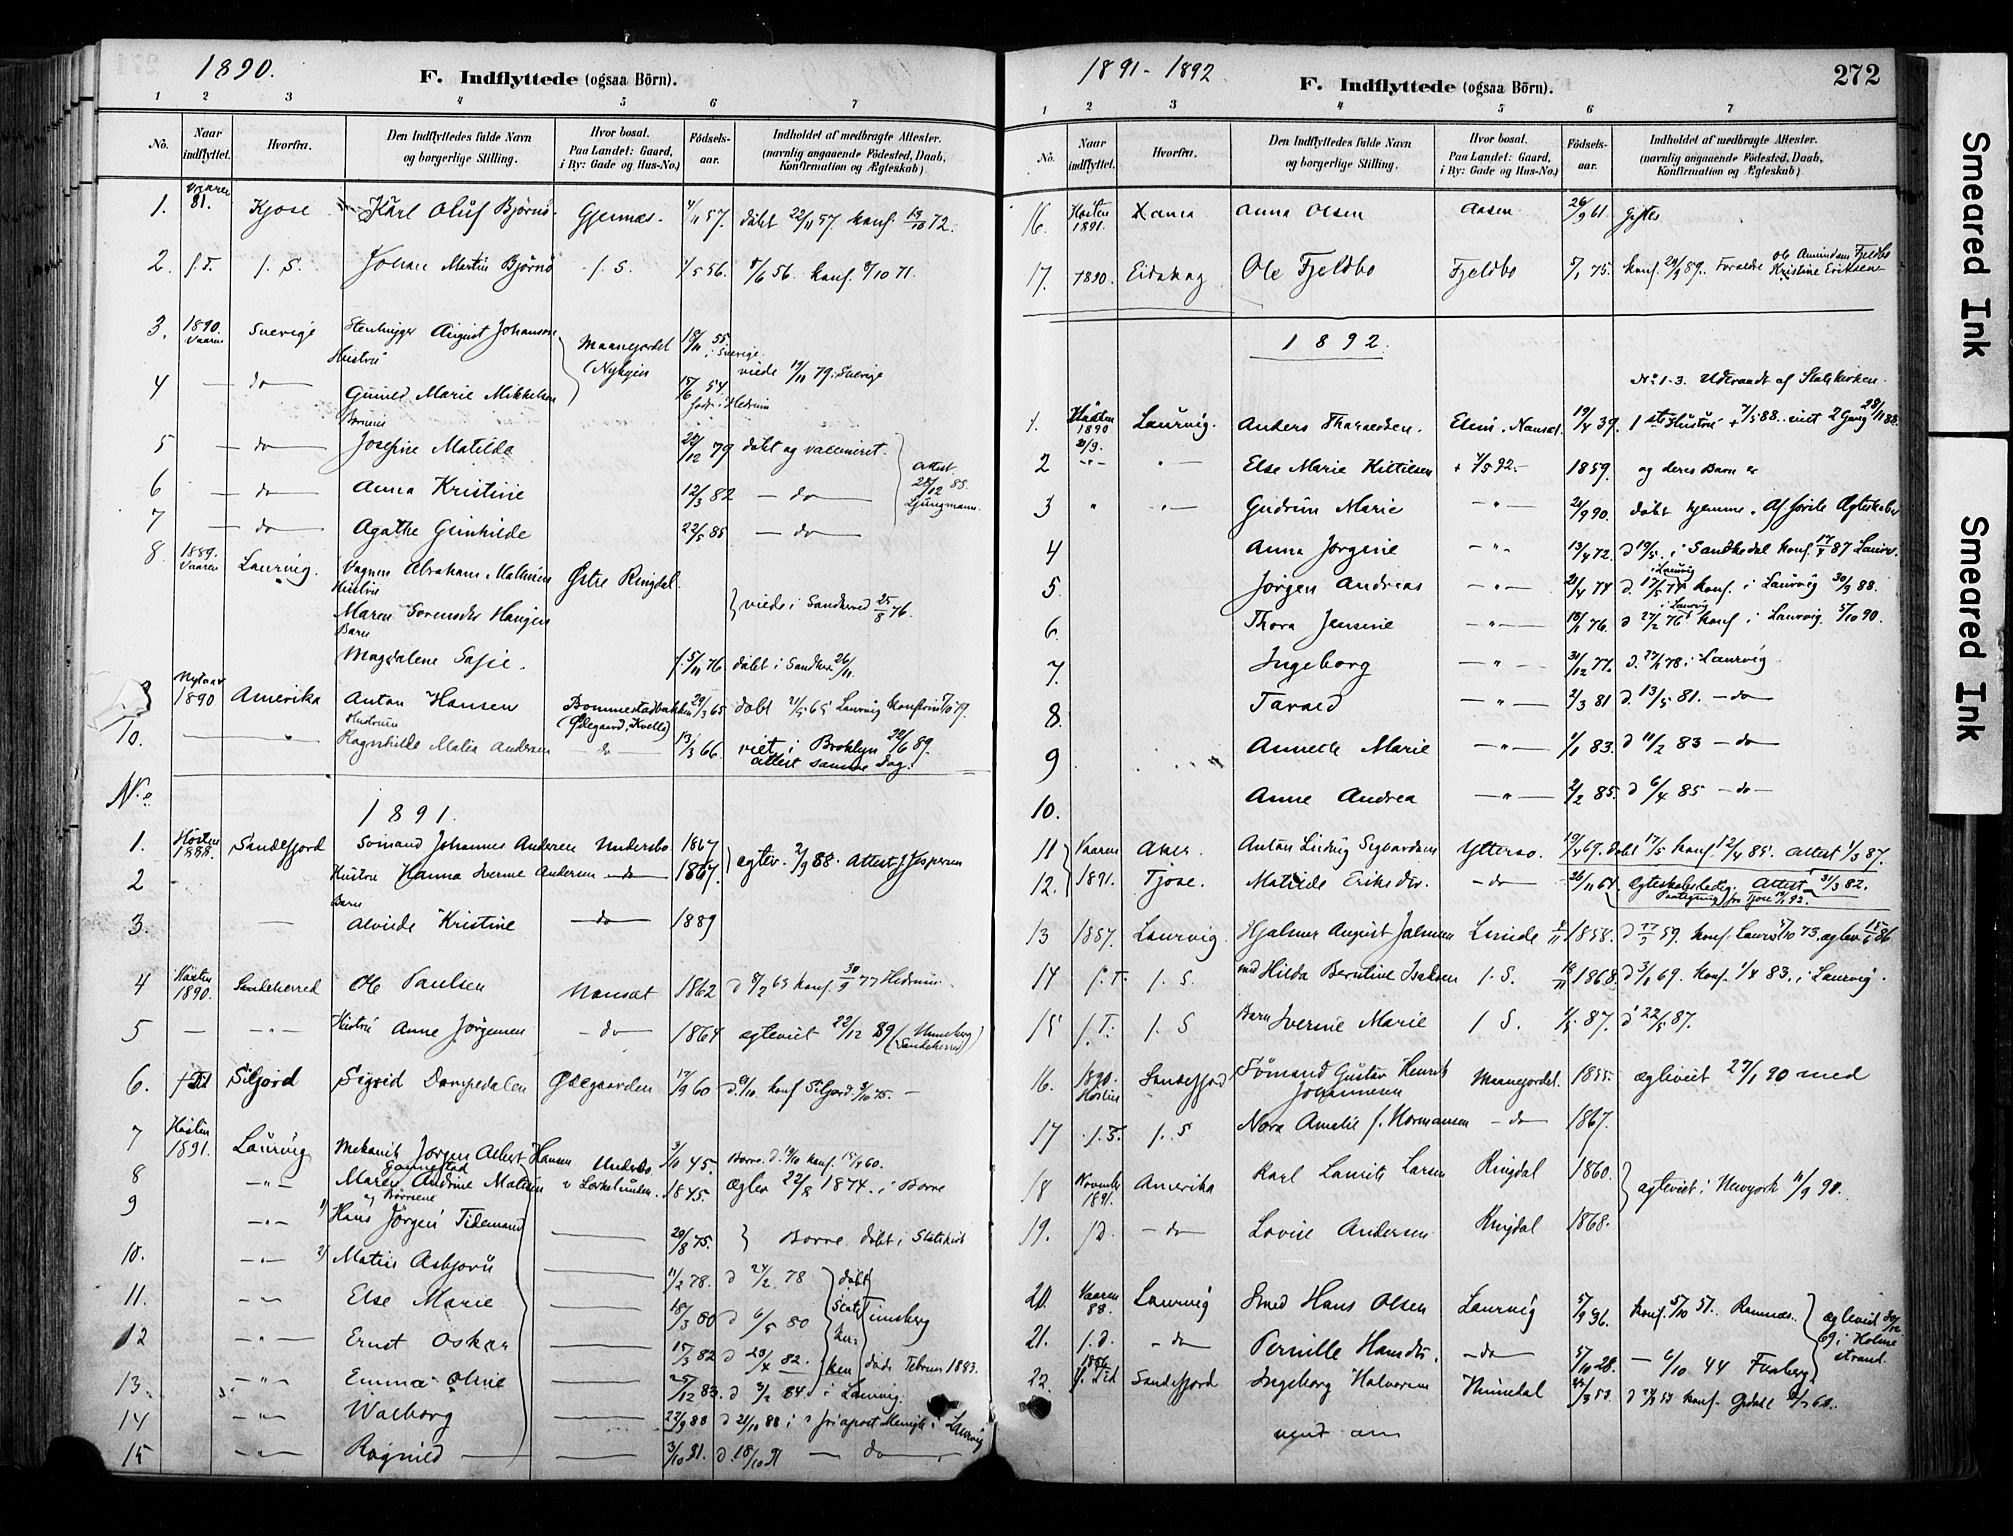 1890.
F. Indflyttede (ogsaa Börn).
1 2 3 4 5 6 7
No. Naar indflyttet. Hvorfra. Den Indflyttedes fulde Navn og borgerlige Stilling. Hvor bosat. Paa Landet: Gaard, i By: Gade og Hus-No.) Fødsels-aar. Indholdet af medbragte Attester. (navnlig angaaende Födested, Daab, Konfirmation og Ægteskab)
1. Vaaren 81. Kjose Karl Oluf Bjørnø Gjernæs. 4/11 57. døbt 22/11 57 konf. 13/10 72.
2. f.T. f. S. Johan Martin Bjørnø f. S. 1/5 56. 8/6 56. konf. 8/10 71.
3. 1890. Vaaren Sverige Stenhugger August Johanson Maanejordet (Nyhgin 18/11 55 i Sverige
Hustru
4 — do — Gunild Marie Mikkelsen 15/6 54 født i Hedrum viede 19/11 79. Sverige
Børnene
5 — do — Josefine Matilde 28/12 79 døbt og vaccineret. Attest 28/12 88. Ljungmann.
6 — do — Anna Kristine 12/3 82 — do —
7 — do — Agathe Gunhilde 22/5 85 — do —
8 1889. Vaaren Laurvig. Vognm Abraham Mathisen Østre Ringdal
Hustru
Maren Sørensdtr Haugen viede i Sandherred 25/8 76.
Barn
Magdalene Sofie. f. 5/11 76 døbt i Sandher 26/11.
Nytaar 1890 Amerika Anton Hansen Bommestadbakken (Ødegaard, Kvelle) 29/3 65 døbt 21/5 65 Laurvig konfirm 5/10 79.
Hustruen
10. " Ragnhilde Malia Andersen do 13/3 66 viet i Broklyn 22/6 89. attest samme Dag.
No.
1891.
1. Høsten 1888. Sandefjord Sømand Johannes Andersen Undersbo 1867 ægtev. 2/9 88. Attest J. Jespersen
2 - Hustru Hanna Iverine Andersen — do 1867.
Barn
3. — Alvide Kristine — do 1889
4 Høsten 1890. Sandeherred Ole Paulsen Nanset 1862 d 8/2 63 konf. 30/9 77 Hedrum
5 — — " — Hustru Anne Jørgensen — do — 1864 ægteviet 22/12 89 (Unneberg Sandeherred)
6. f Tid Siljord Sigrid Dampedalen Ødegaarden 17/9 60 d. 9/10. konf Siljord 3/10 75. —
7 Høsten 1891. Laurvig Mekanik Jørgen Albert Hansen Undersbo 3/10 45. Borre. d. 19/10 konf. 15/4 60.
8 — " — Maren Andrine Matisen v Lerkelunden. 1845. Ægtev 22/8 1874. i Borre
og Børnene
9 — " — 1) Hans Jørgen Tidemand — 20/8 75. Borre. døbt i Statskirk
10. — " — 2) Matis Asbjørn — 11/2 78. d 24/2 78 døbt
11. — " — Else Marie — 18/3 80 d 6/5 80 State Tunsberg
12 — " — Ernst Oskar — 15/3 82 d 23/4 82. kir-
13. — " — Emma Oline — 25/12 83. d 3/2 84. i Laurvig. ken døde Februar 1883.
14 — " — Walborg — 22/9 88 d 21/10 88 i Friapost Menigh i Laurvig
15 — " — Ragnild — — 3/10 91. d. 18/10 91 — do —
1891 - 1892
F. Indflyttede (ogsaa Börn).
272
1 2 3 4 5 6 7
No. Naar indflyttet. Hvorfra. Den Indflyttedes fulde Navn og borgerlige Stilling. Hvor bosat. Paa Landet: Gaard, i By: Gade og Hus-No.) Fødsels-aar. Indholdet af medbragte Attester. (navnlig angaaende Födested, Daab, Konfirmation og Ægteskab)
16. Høsten 1891. Anna Olsen Aasen 26/9 61. Giftes
17. 1890. Eidskog Ole Fjeldbo Fjeldbo 5/1 75. konf 29/9 89. Forældre Ole Amundsen Fjeldbo Kristine Eriksen
1892.
No. 1-3. Udtraadt af Statskirken.
1. Høsten 1890 Laurvig. Anders Tharaldsen. Elin. Nanset. 19/4 39. 1ste Hustru + 7/5 88. viet 2 Gang 28/11 88.
2 21/9. " " — Else Marie Kittilsen + 4/5 92. — 1859. og deres Barn er
3 " " — Gudrun Marie — " — 26/9 90. døbt hjemme. Af første Ægteskab
4 Anna Jørgine — " — 13/4 72. d 19/5. i Sandhedal konf. 17/4 87 Laurv.
5. Jørgen Andreas — " — 21/4 74 d. 17/5 74 i Laurvig konf. i Laurvig 30/9 88.
6. Thora Jensine — " — 18/1 76. d 27/2 76 i Laurvig konf i Laurvig 5/10 90.
7. Ingeborg — " — 31/12 77. d. 27/1 78. i Laurvig
8. Tarald — " — 2/3 81 d 13/5 81. — do
9 Annette Marie — " — 1/1 83. d 11/2 83 — do —
10. Anne Andrea — " — 2/2 85. d 6/4 85 — do —
11 Vaaren Aker. Anton Ludvig Sigvardsen Ytterso. 19/4 69. døbt 17/5 konf. 12/4 85. attest 1/3 87.
12. 1891. Tjose. Matilde Eriksdtr. — do — 26/11 64 Ægteskabsledig. Attest 31/3 82. Paategning fra Tjose 14/1 92.
13 1887. Laurvig. Hjalmar August Johnsen Linde 4/11 1858. d 27/3 59. konf Laurv 5/10 73. ægtev. 15/6 86
14 f. T. f. S. med Hilda Berntine Isaksen f. S. 18/11 1868. d 3/1 69. konf. 1/4 83. i Laurvig.
15 f. T. f. S Barn Iverine Marie f S. 1/5 87. d 22/5 87.
16. 1890. Høsten Sandefjord Sømand Gustav Henrik Johannesen Maanejordet. 1855. ægteviet 27/1 90 med
17 f. T. f. S Nora Amalie f. Normansen — do — 1867.
18 Novemb 1891. Amerika Karl Laurits Larsen Ringdal 1860. ægteviet i Newyork 11/9 90.
19. f D. — do Lovise Andersen Ringdal 1868.
20. Vaaren 88. Laurvig Smed Hans Olsen Laurvig 5/9 36. konf. 5/10 51. Ramnæs. ægteviet 30/12 69 i Holmestrand.
21. f. d. — do Pernille Hansdtr. — do — 5/10 28. — 6/10 44 Fusberg
22. 1886 f. Tid Sandefjord Ingeborg Halvorsen Himedal 22/3 53 d 28/3 53 konf. Grdal
vend om
Smeared Ink
Smeared Ink